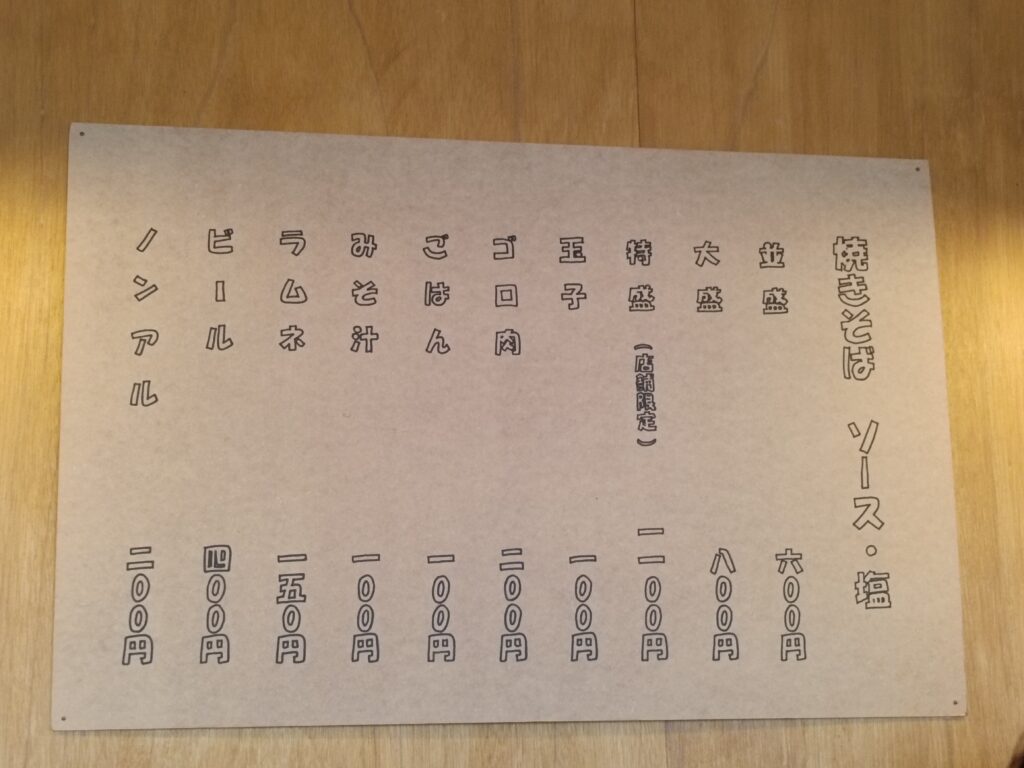 焼きそば ソース・塩
並盛 六〇〇円
大盛 八〇〇円
特盛(店舗限定) 一一〇〇円
玉子 一〇〇円
ゴロ肉 二〇〇円
ごはん 一〇〇円
みそ汁 一〇〇円
ラムネ 一五〇円
ビール 四〇〇円
ノンアル 二〇〇円